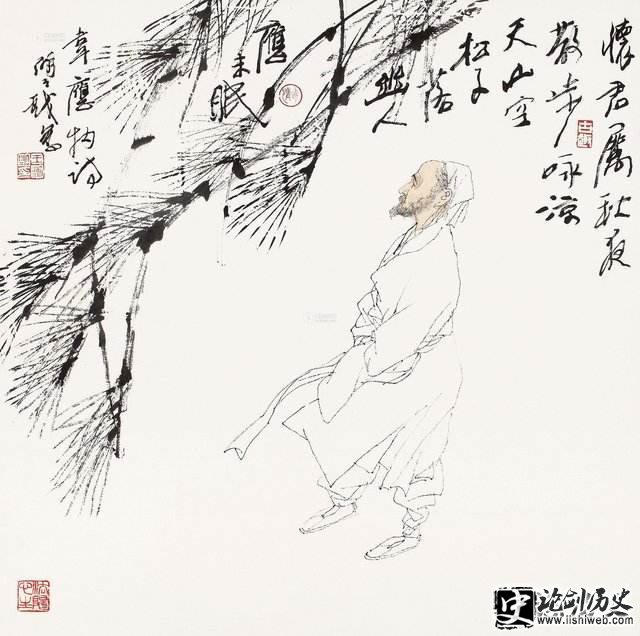 懷君屬秋夜
散步咏凉
天山空
松子
落
幽人
應
未眠
韋應物詩
史 论剑历史
www.lishiweb.com